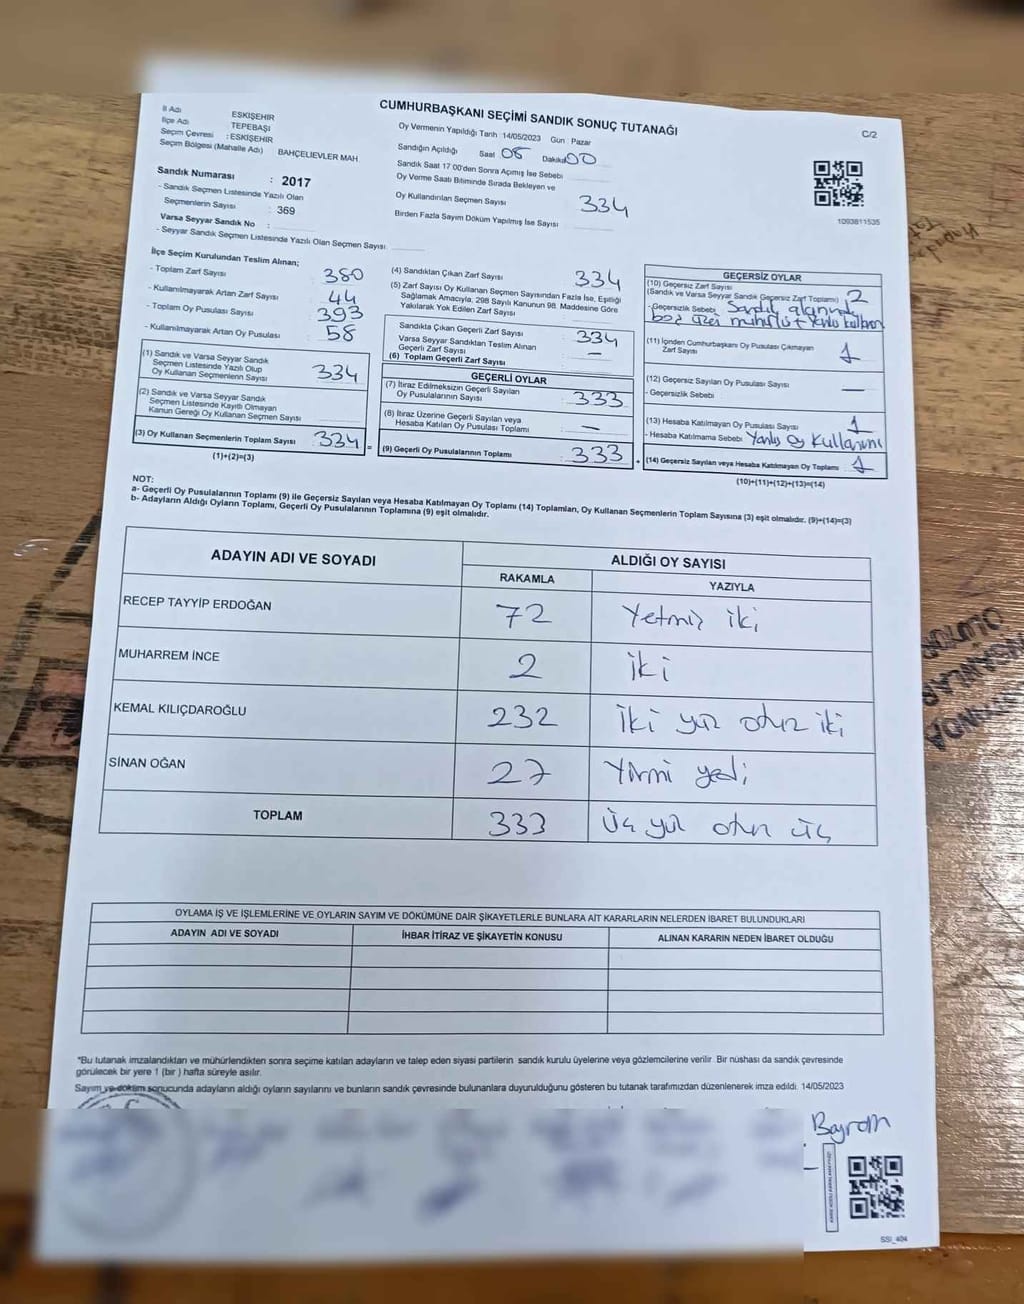 CUMHURBAŞKANI SEÇİMİ SANDIK SONUÇ TUTANAĞI
C/2
İl Adı ESKİŞEHİR
İlçe Adı TEPEBAŞI
Seçim Çevresi : ESKİŞEHİR
Seçim Bölgesi (Mahalle Adı) BAHÇELİEVLER MAH.
Sandık Numarası : 2017
- Sandık Seçmen Listesinde Yazılı Olan
Seçmenlerin Sayısı : 369
Varsa Seyyar Sandık No :
- Seyyar Sandık Seçmen Listesinde Yazılı Olan Seçmen Sayısı:
Oy Vermenin Yapıldığı Tarih :14/05/2023 Gün : Pazar
Sandığın Açıldığı Saat 08 Dakika 00
Sandık Saat 17:00'den Sonra Açılmış İse Sebebi
Oy Verme Saati Bitiminde Sırada Bekleyen ve
Oy Kullandırılan Seçmen Sayısı 334
Birden Fazla Sayım Döküm Yapılmış İse Sayısı
1093811535
İlçe Seçim Kurulundan Teslim Alınan;
- Toplam Zarf Sayısı : 380
- Kullanılmayarak Artan Zarf Sayısı : 44
- Toplam Oy Pusulası Sayısı : 393
- Kullanılmayarak Artan Oy Pusulası : 58
(1) Sandık ve Varsa Seyyar Sandık
Seçmen Listesinde Yazılı Olup
Oy Kullanan Seçmenlerin Sayısı : 334
(2) Sandık ve Varsa Seyyar Sandık
Seçmen Listesinde Kayıtlı Olmayan
Kanun Gereği Oy Kullanan Seçmen Sayısı
(3) Oy Kullanan Seçmenlerin Toplam Sayısı : 334 =
(1)+(2)=(3)
(4) Sandıktan Çıkan Zarf Sayısı 334
(5) Zarf Sayısı Oy Kullanan Seçmen Sayısından Fazla İse, Eşitliği
Sağlamak Amacıyla, 298 Sayılı Kanunun 98. Maddesine Göre
Yakılarak Yok Edilen Zarf Sayısı
Sandıkta Çıkan Geçerli Zarf Sayısı : 334
Varsa Seyyar Sandıktan Teslim Alınan
Geçerli Zarf Sayısı : —
(6) Toplam Geçerli Zarf Sayısı
GEÇERLİ OYLAR
(7) İtiraz Edilmeksizin Geçerli Sayılan
Oy Pusulalarının Sayısı : 333
(8) İtiraz Üzerine Geçerli Sayılan veya
Hesaba Katılan Oy Pusulası Toplamı : —
(9) Geçerli Oy Pusulalarının Toplamı : 333 +
GEÇERSİZ OYLAR
(10) Geçersiz Zarf Sayısı
(Sandık ve Varsa Seyyar Sandık Geçersiz Zarf Toplamı) : 2
-Geçersizlik Sebebi : Sandık
muhulust Yanlış kullanım
(11) İçinden Cumhurbaşkanı Oy Pusulası Çıkmayan
Zarf Sayısı : 1
(12) Geçersiz Sayılan Oy Pusulası Sayısı : —
- Geçersizlik Sebebi :
(13) Hesaba Katılmayan Oy Pusulası Sayısı : 1
- Hesaba Katılmama Sebebi : Yanlış Oy Kullanımı
(14) Geçersiz Sayılan veya Hesaba Katılmayan Oy Toplamı : 1
(10)+(11)+(12)+(13)=(14)
NOT:
a- Geçerli Oy Pusulalarının Toplamı (9) ile Geçersiz Sayılan veya Hesaba Katılmayan Oy Toplamı (14) Toplamları, Oy Kullanan Seçmenlerin Toplam Sayısına (3) eşit olmalıdır. (9)+(14)=(3)
b- Adayların Aldığı Oyların Toplamı, Geçerli Oy Pusulalarının Toplamına (9) eşit olmalıdır.
ADAYIN ADI VE SOYADI ALDIĞI OY SAYISI
RAKAMLA YAZIYLA
RECEP TAYYİP ERDOĞAN 72 Yetmiş iki
MUHARREM İNCE 2 iki
KEMAL KILIÇDAROĞLU 232 iki yüz otuz iki
SİNAN OĞAN 27 Yirmi yedi
TOPLAM 333 Üç yüz otuz üç
OYLAMA İŞ VE İŞLEMLERİNE VE OYLARIN SAYIM VE DÖKÜMÜNE DAİR ŞİKAYETLERLE BUNLARA AİT KARARLARIN NELERDEN İBARET BULUNDUKLARI
ADAYIN ADI VE SOYADI İHBAR İTİRAZ VE ŞİKAYETİN KONUSU ALINAN KARARIN NEDEN İBARET OLDUĞU
*Bu tutanak imzalandıktan ve mühürlendikten sonra seçime katılan adayların ve talep eden siyasi partilerin sandık kurulu üyelerine veya gözlemcilerine verilir. Bir nüshası da sandık çevresinde
görülecek bir yere 1 (bir) hafta süreyle asılır.
Sayım ve döküm sonucunda adayların aldığı oyların sayılarını ve bunların sandık çevresinde bulunanlara duyurulduğunu gösteren bu tutanak tarafımızdan düzenlenerek imza edildi. 14/05/2023
Bayram
SSI_404